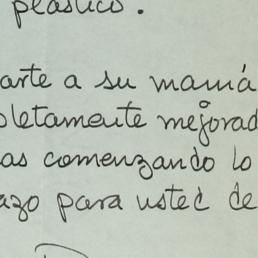 plástico.
arte a su mamá
pletamente mejorad
as comenzando lo
azo para usted de